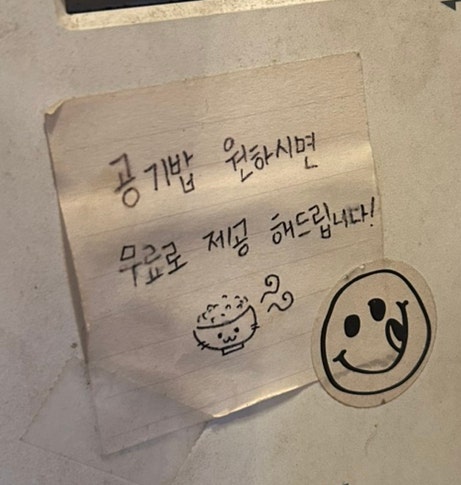 공기밥 원하시면
무료로 제공 해드립니다!